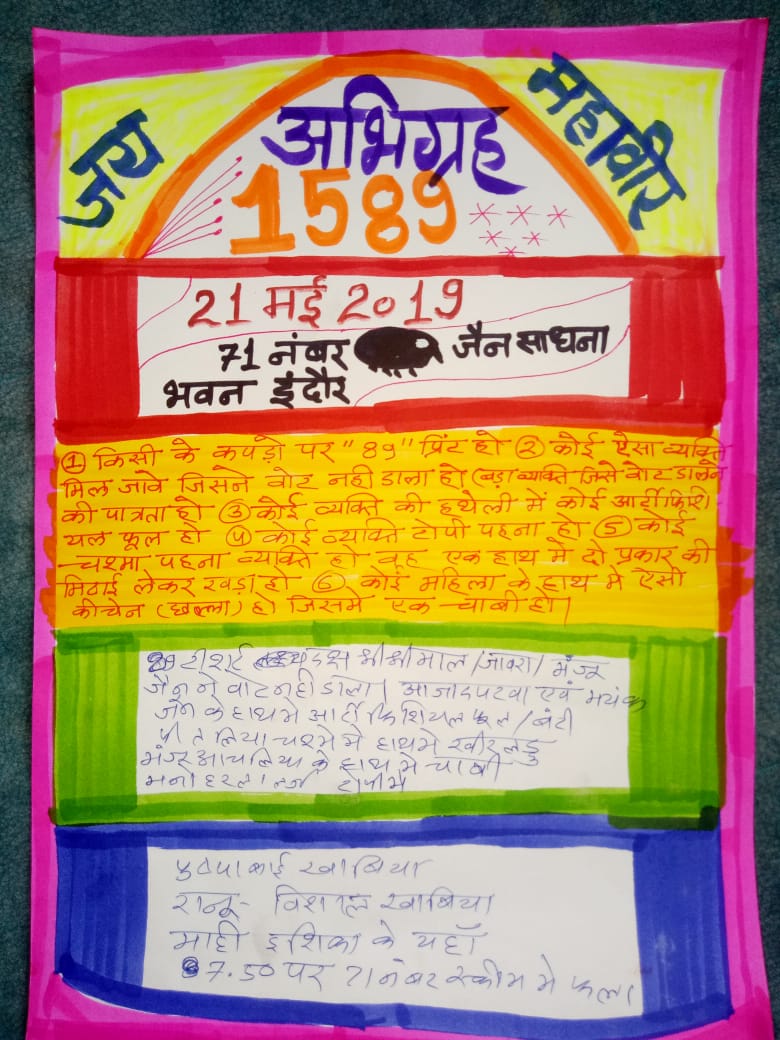 जय
अभिग्रह
महावीर
1589
21 मई 2019
71 नंबर जैन साधना
भवन इंदौर
① किसी के कपड़ो पर "89" प्रिंट हो ② कोई ऐसा व्यक्ति
मिल जावे जिसने वोट नही डाला हो (बड़ा व्यक्ति जिसे वोट डालने
की पात्रता हो ③ कोई व्यक्ति की हथेली में कोई आर्टीफिशि-
यल फूल हो ④ कोई व्यक्ति टोपी पहना हो ⑤ कोई
चश्मा पहना व्यक्ति हो वह एक हाथ मे दो प्रकार की
मिठाई लेकर खड़ा हो ⑥ कोई महिला के हाथ मे ऐसी
कीचेन (छल्ला) हो जिसमे एक चाबी हो।
89 टीशर्ट श्री श्रीमाल / जावरा / मंजू
जैन ने वोट नही डाला। आजाद पटवा एवं मयंक
जैन के हाथ मे आर्टीफिशियल फूल / बंटी
चश्मे मे हाथ मे खीर लड्डु
मंजू आचलिया के हाथ मे चाबी
टोपी मे
पुष्पा बाई खाबिया
रानू - विशाल खाबिया
माही इशिका के यहाँ
7.50 पर 71 नंबर स्कीम मे फला।